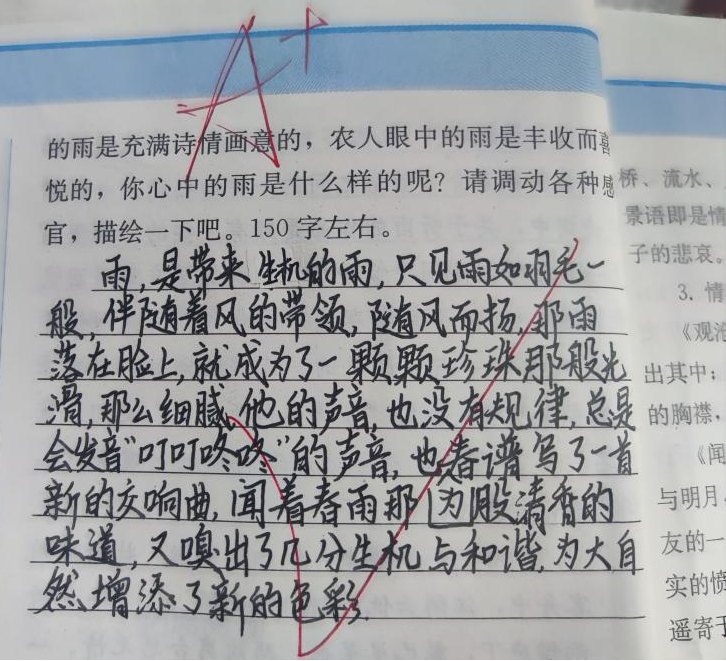 A+
的雨是充满诗情画意的，农人眼中的雨是丰收而喜
悦的，你心中的雨是什么样的呢？请调动各种感
官，描绘一下吧。150字左右。
雨，是带来生机的雨，只见雨如羽毛一
般，伴随着风的带领，随风而扬，那雨
落在脸上，就成为了一颗颗珍珠那般光
滑，那么细腻，他的声音，也没有规律，总是
会发音“叮叮咚咚”的声音，也春谱写了一首
新的交响曲，闻着春雨那为股清香的
味道，又嗅出了几分生机与和谐，为大自
然增添了新的色彩.
桥、流水、
景语即是情
子的悲哀。
3. 情
《观沧
出其中；
的胸襟，
《闻
与明月
友的一
实的愤
遥寄于